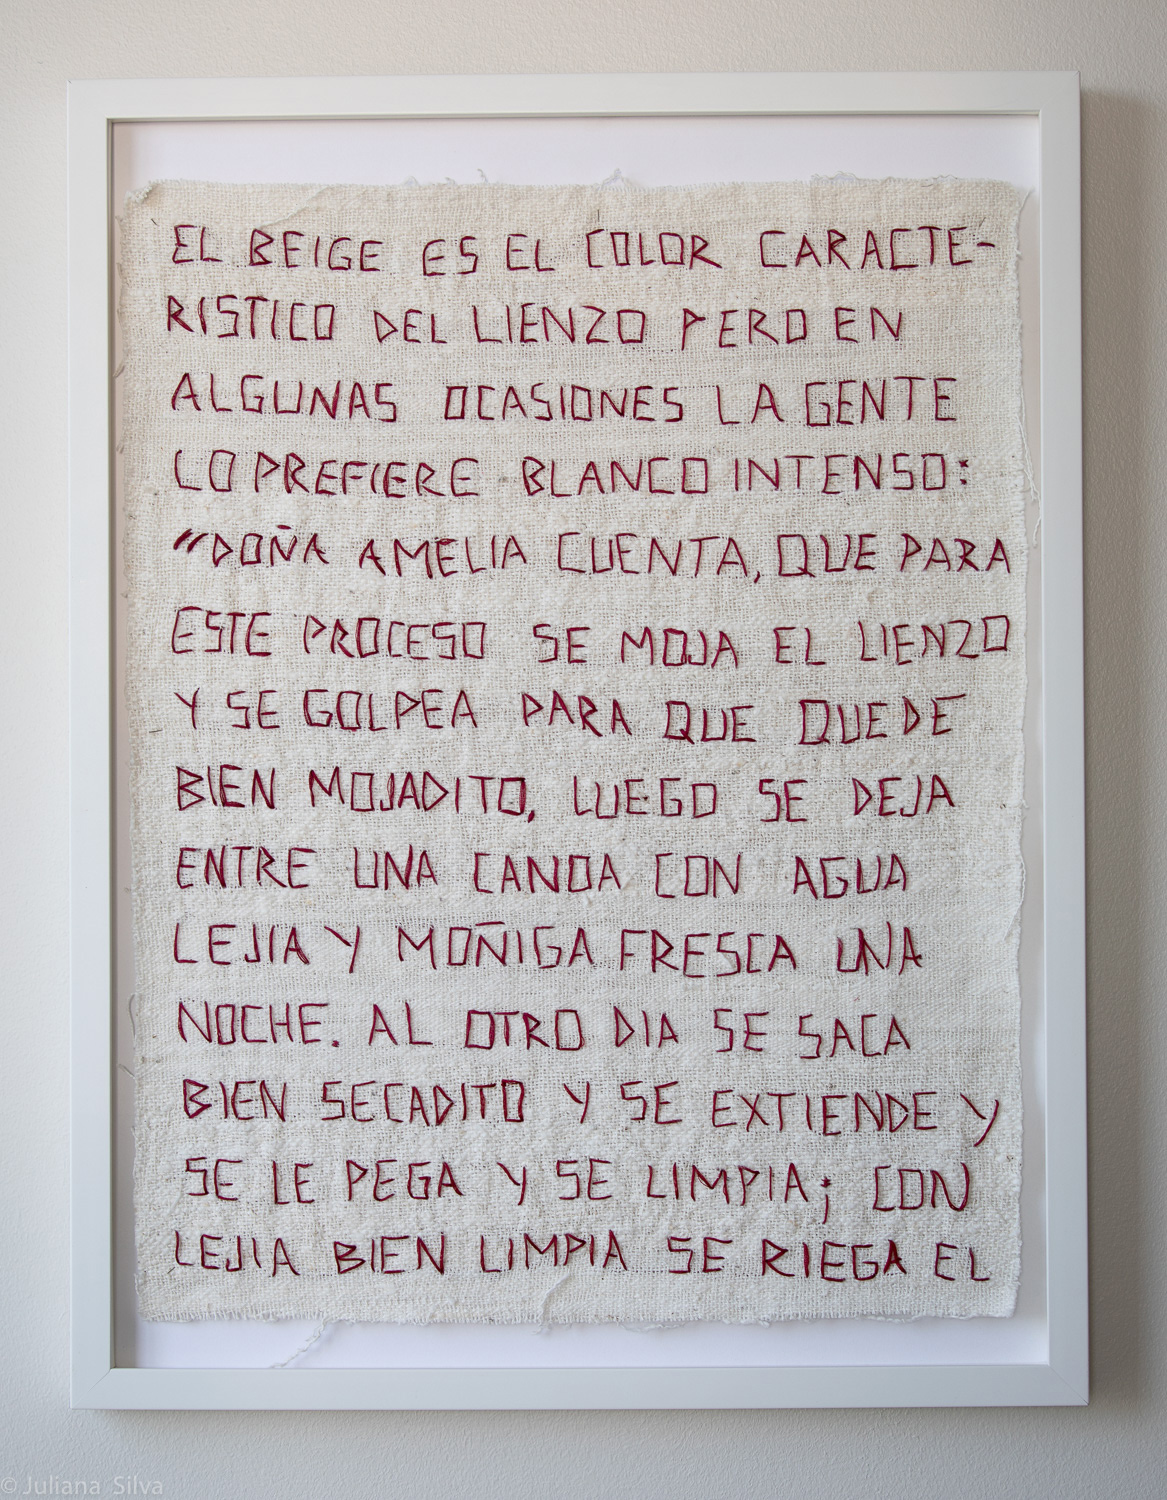 EL BEIGE ES EL COLOR CARACTE-
RISTICO DEL LIENZO PERO EN
ALGUNAS OCASIONES LA GENTE
LO PREFIERE BLANCO INTENSO:
“DOÑA AMELIA CUENTA, QUE PARA
ESTE PROCESO SE MOJA EL LIENZO
Y SE GOLPEA PARA QUE QUEDE
BIEN MOJADITO, LUEGO SE DEJA
ENTRE UNA CANOA CON AGUA
LEJIA Y MOÑIGA FRESCA UNA
NOCHE. AL OTRO DIA SE SACA
BIEN SECADITO Y SE EXTIENDE Y
SE LE PEGA Y SE LIMPIA; CON
LEJIA BIEN LIMPIA SE RIEGA EL
© Juliana Silva